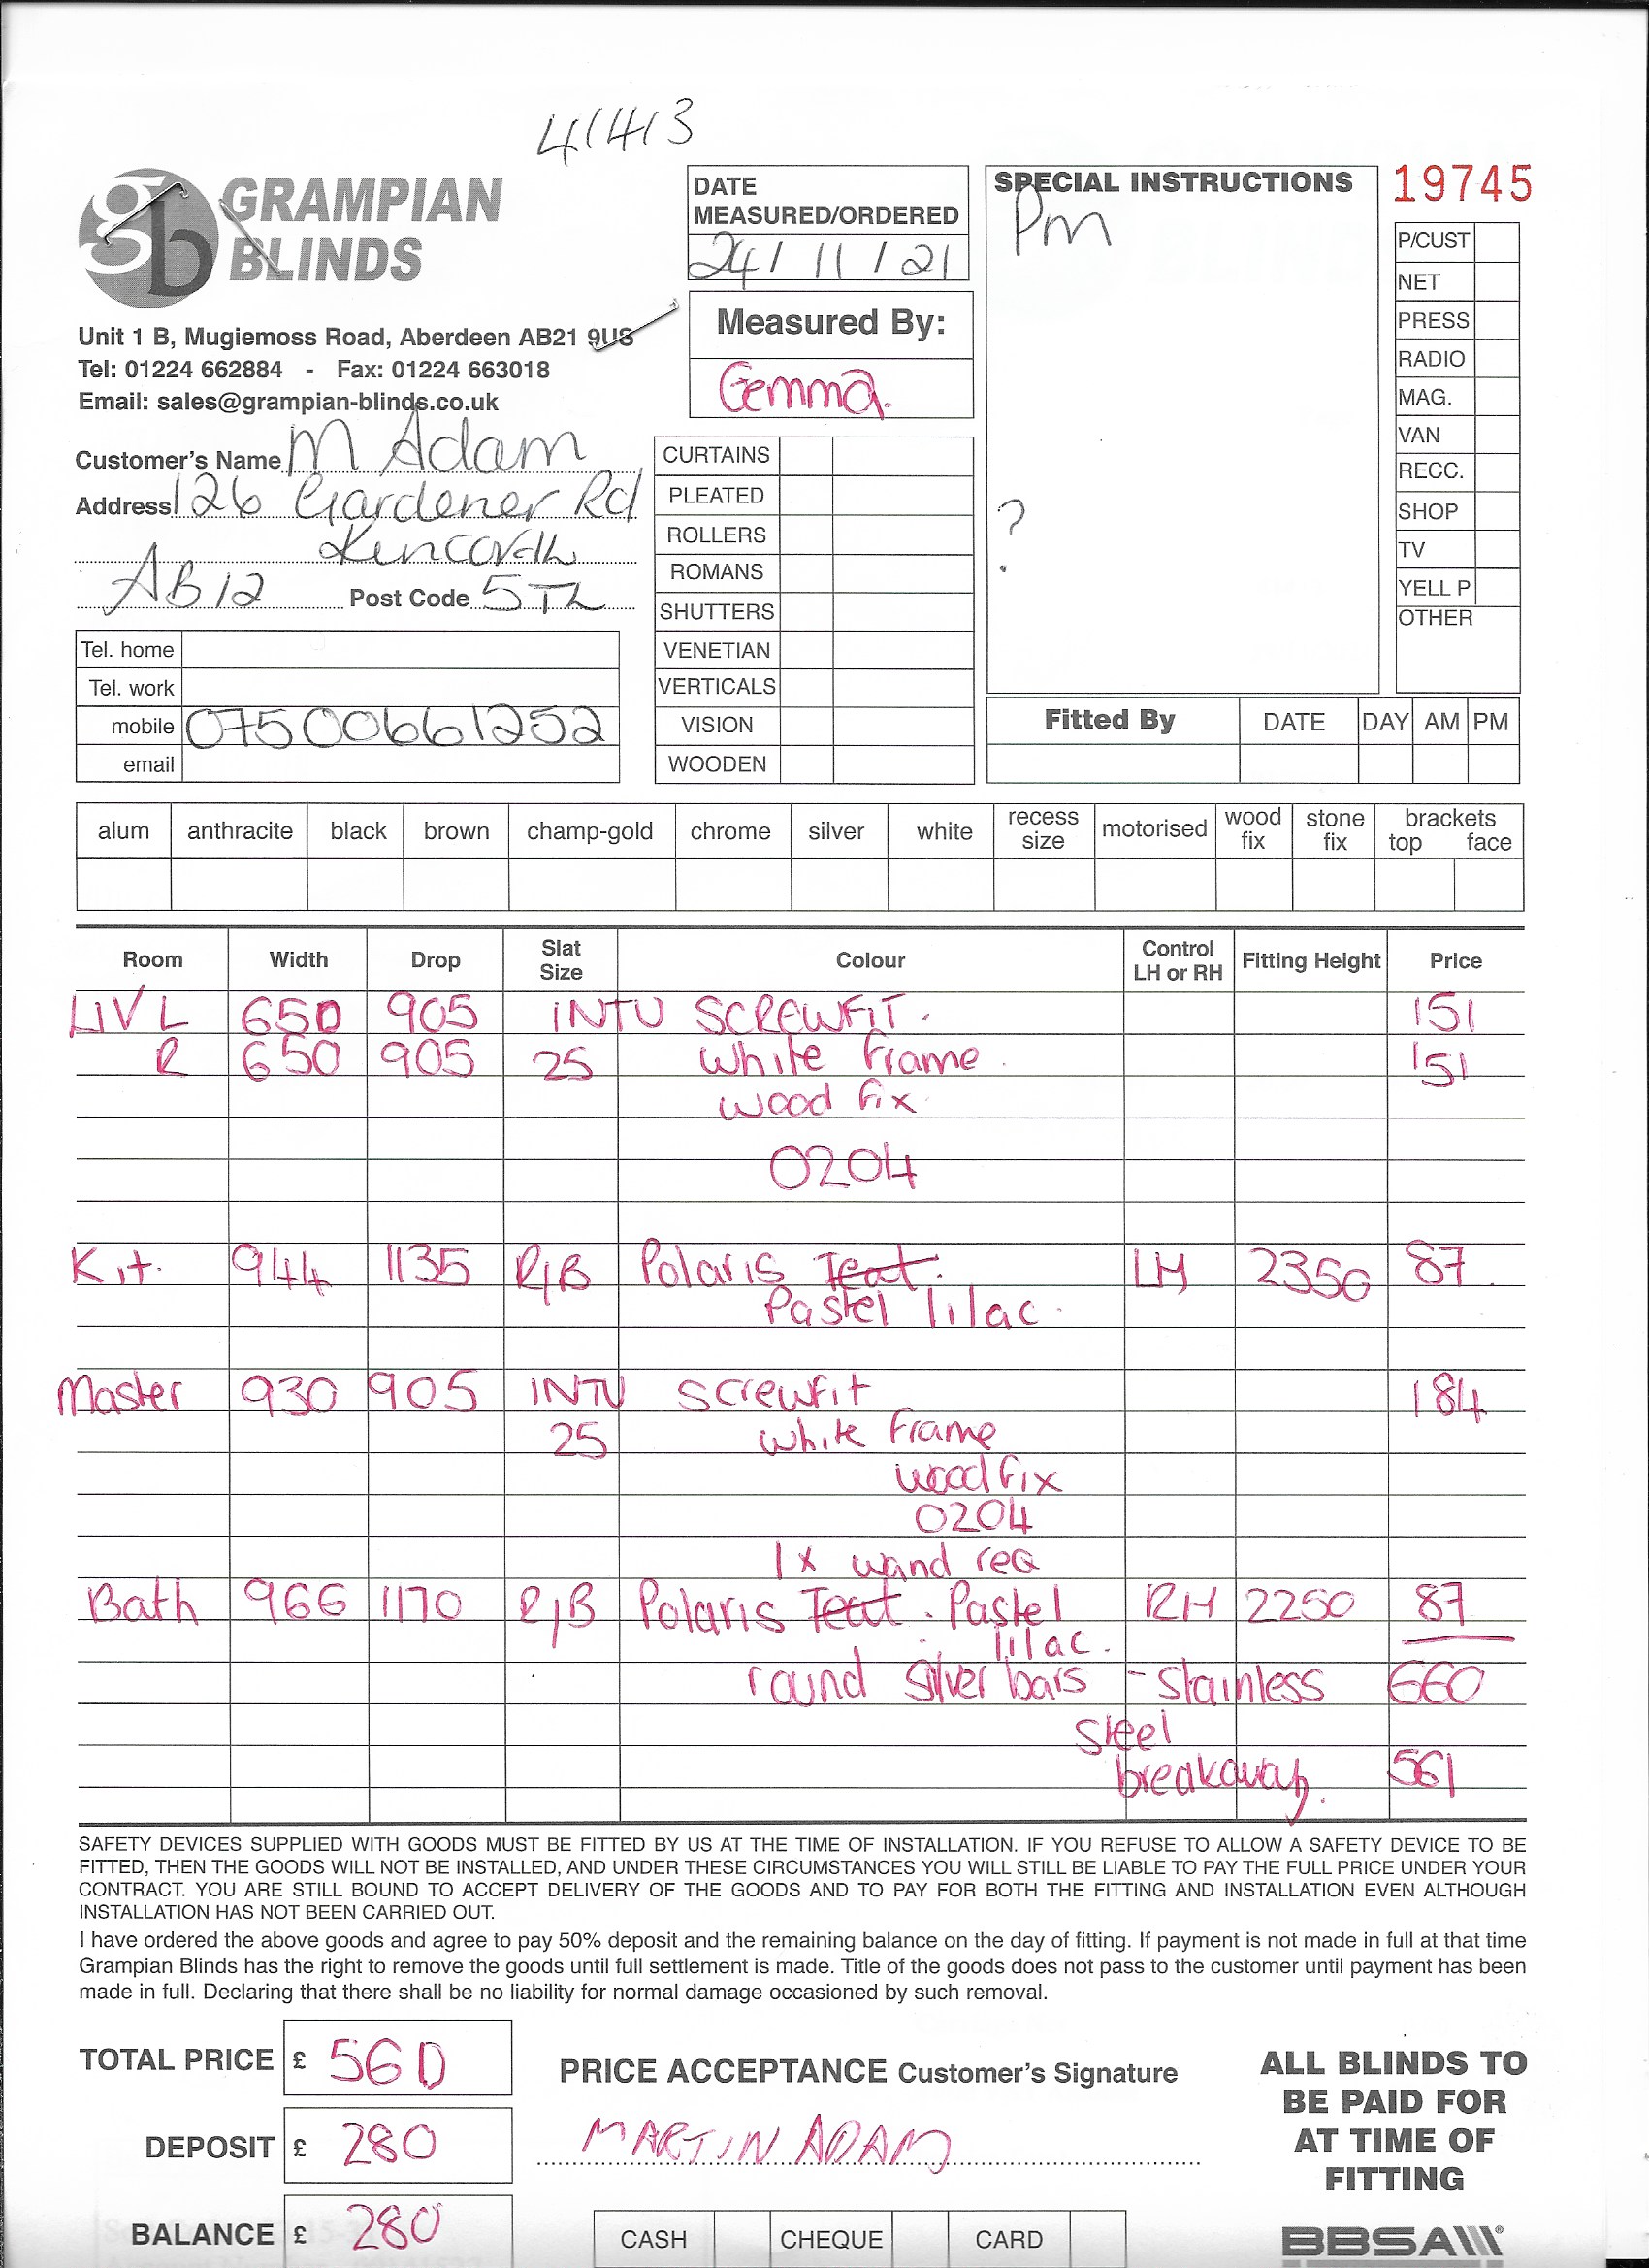 41413
GRAMPIAN
BLINDS
Unit 1 B, Mugiemoss Road, Aberdeen AB21 9US
Tel: 01224 662884 - Fax: 01224 663018
Email: sales@grampian-blinds.co.uk
DATE
MEASURED/ORDERED
24/11/21
Measured By:
Gemma.
SPECIAL INSTRUCTIONS
Pm
?
19745
P/CUST
NET
PRESS
RADIO
MAG.
VAN
RECC.
SHOP
TV
YELL P
OTHER
Customer's Name M Adam
Address 126 Gardener Rd
AB12 Post Code 5TL
Tel. home
Tel. work
mobile 07500661252
email
CURTAINS
PLEATED
ROLLERS
ROMANS
SHUTTERS
VENETIAN
VERTICALS
VISION
WOODEN
Fitted By DATE DAY AM PM
alum anthracite black brown champ-gold chrome silver white recess size motorised wood fix stone fix brackets top face
Room Width Drop Slat Size Colour Control LH or RH Fitting Height Price
LIV L 650 905 INTU SCREWFIT. 151
R 650 905 25 white frame. 151
wood fix
0204
Kit. 944 1135 R/B Polaris Teat. LH 2350 87.
Pastel lilac.
Master 930 905 INTU screwfit 184
25 white frame
wood fix
0204
1x wand req
Bath 966 1170 R/B Polaris Teat. Pastel RH 2250 87
lilac.
round silver bars - stainless 660
steel
breakaway. 561
SAFETY DEVICES SUPPLIED WITH GOODS MUST BE FITTED BY US AT THE TIME OF INSTALLATION. IF YOU REFUSE TO ALLOW A SAFETY DEVICE TO BE
FITTED, THEN THE GOODS WILL NOT BE INSTALLED, AND UNDER THESE CIRCUMSTANCES YOU WILL STILL BE LIABLE TO PAY THE FULL PRICE UNDER YOUR
CONTRACT. YOU ARE STILL BOUND TO ACCEPT DELIVERY OF THE GOODS AND TO PAY FOR BOTH THE FITTING AND INSTALLATION EVEN ALTHOUGH
INSTALLATION HAS NOT BEEN CARRIED OUT.
I have ordered the above goods and agree to pay 50% deposit and the remaining balance on the day of fitting. If payment is not made in full at that time
Grampian Blinds has the right to remove the goods until full settlement is made. Title of the goods does not pass to the customer until payment has been
made in full. Declaring that there shall be no liability for normal damage occasioned by such removal.
TOTAL PRICE £ 560
DEPOSIT £ 280
BALANCE £ 280
PRICE ACCEPTANCE Customer's Signature
MARTIN ADAM
CASH CHEQUE CARD
ALL BLINDS TO
BE PAID FOR
AT TIME OF
FITTING
BBSA